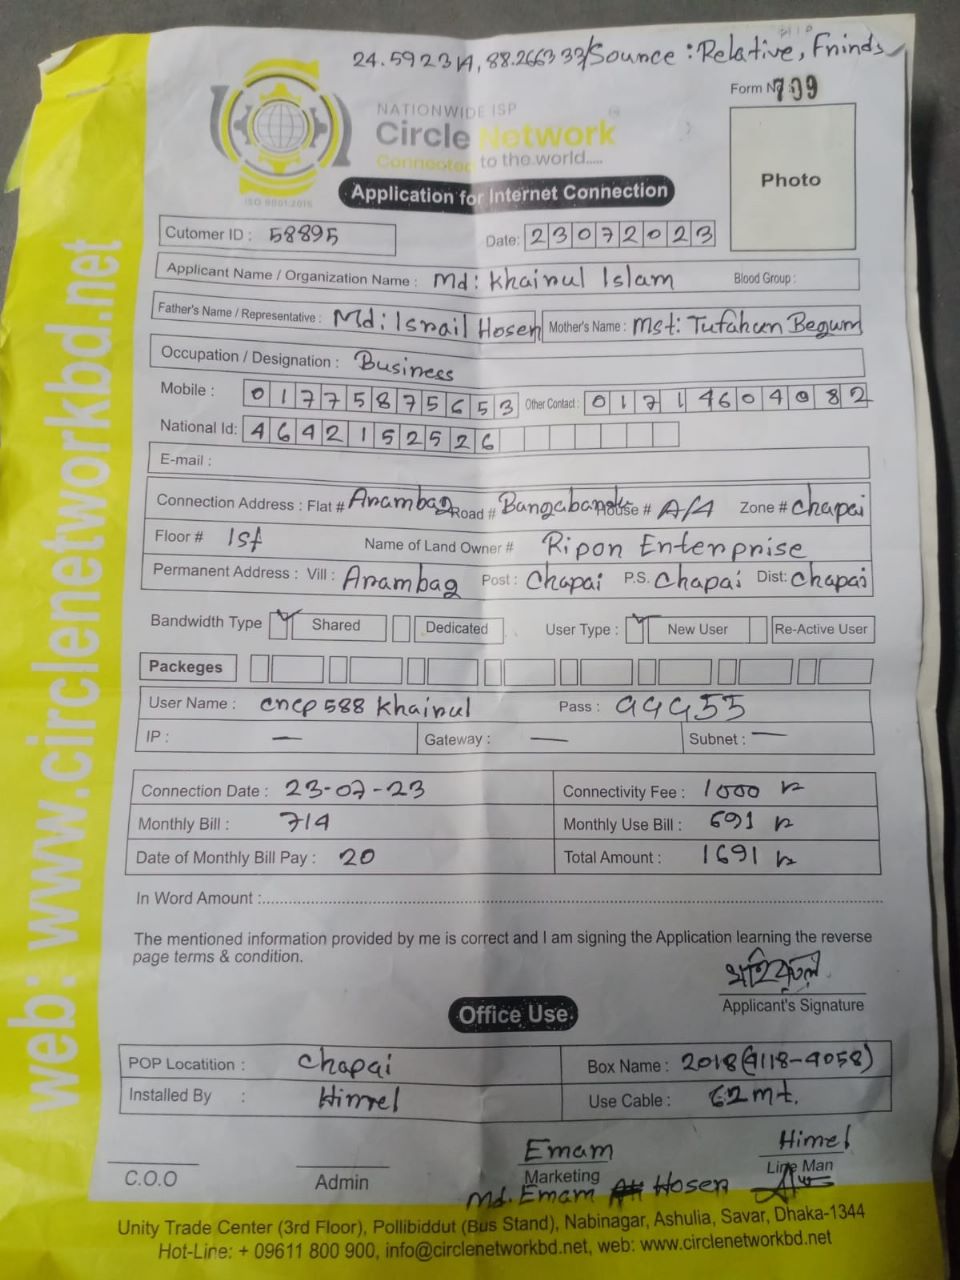 24.592314, 88.266333/Source: Relative, Frinds
Form No 709
NATIONWIDE ISP
Circle Network
Connected to the world.....
ISO 9001:2015
Photo
Application for Internet Connection
Cutomer ID : 58895 Date: 23072023
Applicant Name / Organization Name : Md: Khairul Islam Blood Group :
Father's Name / Representative : Md: Israil Hosen Mother's Name : Mst: Tufahun Begum
Occupation / Designation : Business
Mobile : 01775875653 Other Contact : 01714604082
National Id: 4642152526
E-mail :
Connection Address : Flat # Arambag Road # Bangabandhu House # A/A Zone # Chapai
Floor # 1st Name of Land Owner # Ripon Enterprise
Permanent Address : Vill : Arambag Post : Chapai P.S. Chapai Dist: Chapai
Bandwidth Type Shared Dedicated User Type : New User Re-Active User
Packeges
User Name : cncp588 Khairul Pass : 99955
IP : — Gateway : — Subnet : —
Connection Date : 23-07-23 Connectivity Fee : 1000
Monthly Bill : 714 Monthly Use Bill : 691
Date of Monthly Bill Pay : 20 Total Amount : 1691
In Word Amount :
The mentioned information provided by me is correct and I am signing the Application learning the reverse
page terms & condition.
Applicant's Signature
Office Use
POP Locatition : Chapai Box Name : 2018(4118-4058)
Installed By : Himel Use Cable : 62 mt.
Emam Himel
C.O.O Admin Marketing Line Man
Md. Emam Hosen
Unity Trade Center (3rd Floor), Pollibiddut (Bus Stand), Nabinagar, Ashulia, Savar, Dhaka-1344
Hot-Line: + 09611 800 900, info@circlenetworkbd.net, web: www.circlenetworkbd.net
web: www.circlenetworkbd.net